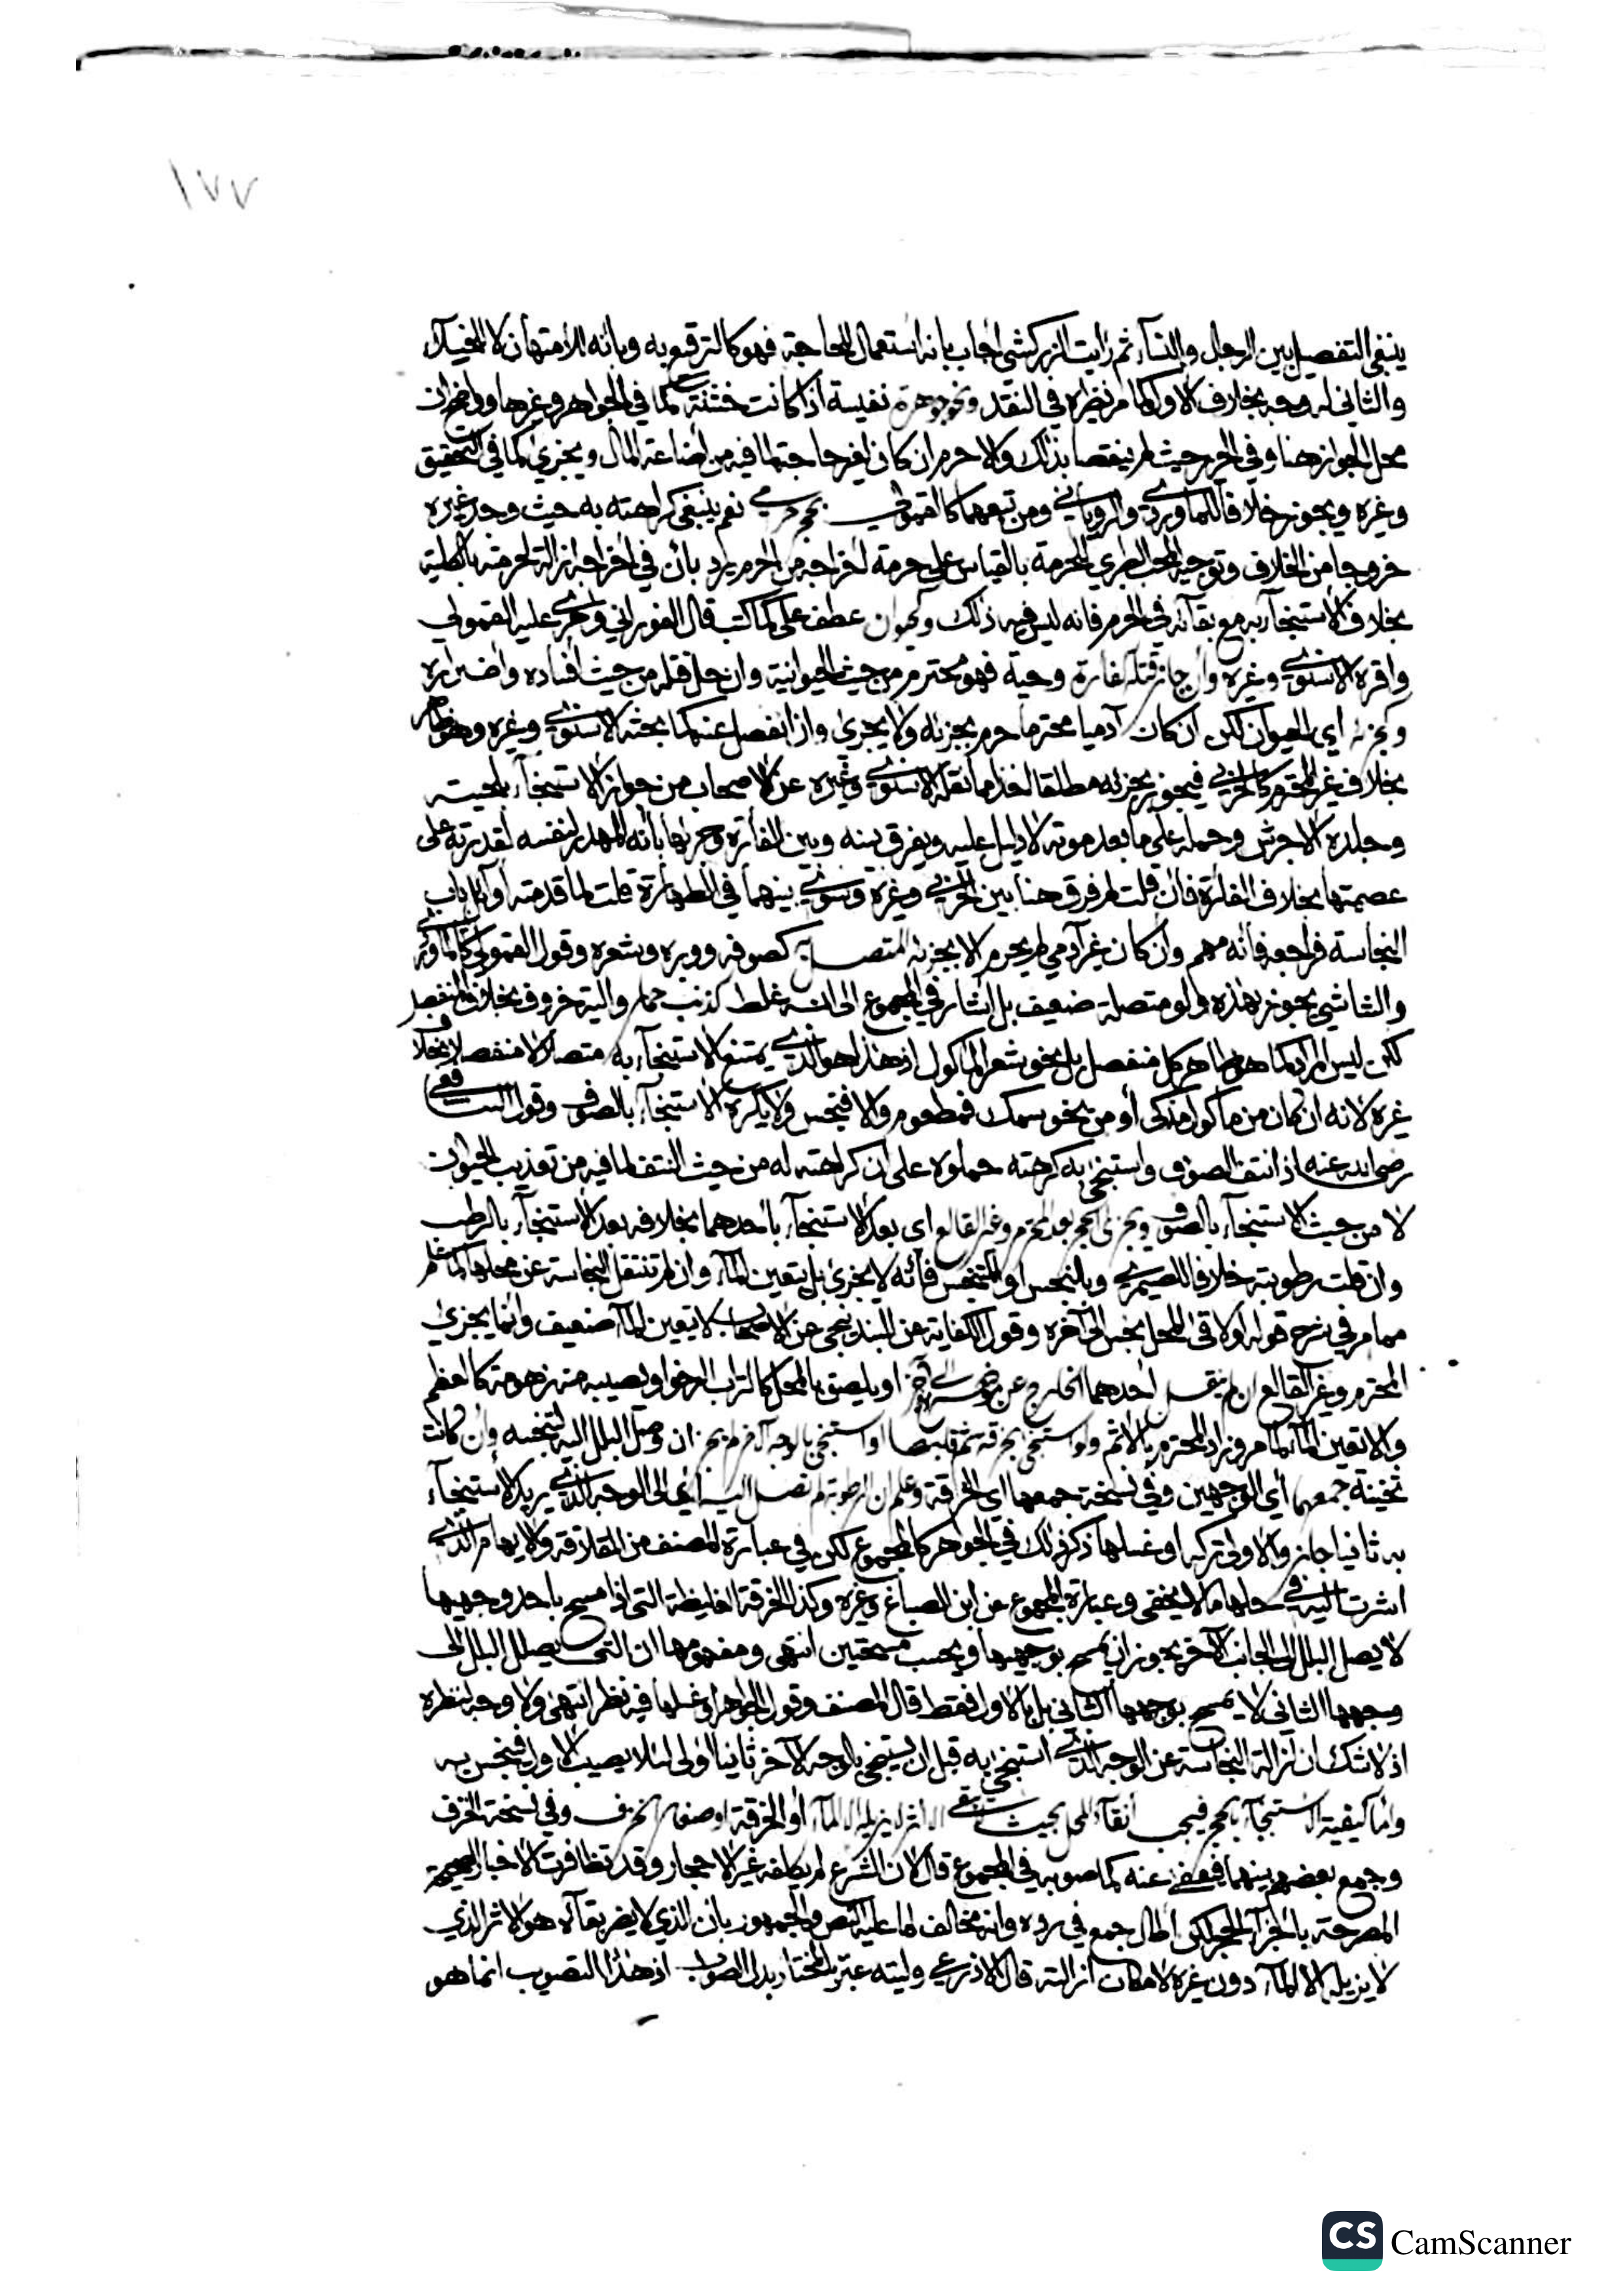 ١٧٧
ينبغي التفصيل بين الرجال والنسآء ثم رايت الزركشي اجاب بانه استعمال للحاجة فهو كالترقيع به وبانه للامتهان لا للخيلآء
والثاني له وجه بخلاف الاول كما مر نظيره في النقد ونحو جوهرة نفيسة اذا كانت خشنة كما في الجواهر وغيرها وواضح ان
محل الجواز هنا وفي الحرير حيث لم يقصد بذلك والا حرم ان كان لغير حاجة لما فيه من اضاعة المال ويجزي كما في التحقيق
وغيره ويجوز خلافا للماوردي والروياني ومن تبعهما كالقمولي بحجر حرمي نعم ينبغي كراهته به حيث وجد غيره
خروجا من الخلاف وتوجيه المحب الطبري الحرمة بالقياس على حرمة اخراجه من الحرم يرد بأن في اخراجه ازالة لحرمته بالكلية
بخلاف الاستنجآء به مع بقآئه في الحرم فانه ليس فيه ذلك وحيوان عطف على كما كتب قال الفوراني وجرى عليه القمولي
واقره الاسنوي وغيره وان جاز قتله كفارة وحية فهو محترم من حيث الحيوانية وان حل قتله من حيث افساده واضراره
وبجزئه اي الحيوان لكن ان كان آدميا محترما حرم بجزئه ولا يجزئ وان انفصل عنه كما بحثه الاسنوي وغيره وهو ظاهر
بخلاف غير المحترم كالحربي فيجوز بجزئه مطلقا اخذا مما نقله الاسنوي وغيره عن الاصحاب من جواز الاستنجآء بلحيته
وجلده الاحرش وحمله على ما بعد موته لا دليل عليه ويفرق بينه وبين الفأرة ونحوها بأنه المهدر لنفسه لقدرته على
عصمتها بخلاف الفارة فان قلت لم فرق هنا بين الحربي وغيره وسوي بينهما في الطهارة قلت لما قدمته اوآئل باب
النجاسة فراجعه فانه مهم وان كان غير آدمي لم يحرم الا بجزئه المتصل به كصوفه ووبره وشعره وقول القمولي كالماوردي
والشاشي يجوز بهذه ولو متصلة ضعيف بل اشار في المجموع الى انه غلط كذنب حمار والية خروف بخلاف المنفصل
لكن ليس المراد كما هو ظاهر كل منفصل بل نحو شعر الماكول اذ هذا هو الذي يمتنع الاستنجآء به متصلا لا منفصلا بخلاف
غيره لانه ان كان من ماكول مذكى أو من نحو سمك فمطعوم والا فنجس ولا يكره الاستنجآء بالصوف وقول الشافعي
رضي الله عنه اذا نتف الصوف واستنجى به كرهته حملوه على ان كراهته له من حيث النتف لما فيه من تعذيب الحيوان
لا من حيث الاستنجآء بالصوف ويجزئ الحجر بعد المحترم وغير القالع اي بعد الاستنجآء باحدهما بخلافه بعد الاستنجآء بالرطب
وان قلت رطوبته خلافا للصيمري وبالنجس او المتنجس فانه لا يجزئ بل يتعين المآء وان لم تنتقل النجاسة عن محلها كما علم
مما مر في شرح قوله او لاقى المحل نجس الى آخره وقول الكفاية عن البندنيجي عن الاصحاب لا يتعين المآء ضعيف وانما يجزئ
المحترم وغير القالع ان لم ينقل احدهما الخارج عن موضع الى آخر او يلصق بالمحل كالتراب الرخو او يصيبه منه زهومة كالعظم
والا تعين المآء كما مر وزاد المحترم بالاثم ولو استنجى بخرقة ثم قلبها واستنجى بالوجه الآخر لم يجز ان وصل البلل اليه لتنجسه وان كانت
ثخينة جمعهما أي الوجهين وفي نسخة جمعها اي الخرقة وعلم ان الرطوبة لم تصل اليه اي الى الوجه الذي يريد الاستنجآء
به ثانيا جاز والاولى تركه او غسلها ذكر ذلك في الجواهر كالمجموع لكن في عبارة المصنف من القلاقة والايهام الذي
اشرت اليه في حلها ما لا يخفى وعبارة المجموع عن ابن الصباغ وغيره وكذا الخرقة الغليظة التي اذا مسح باحد وجهيها
لا يصل البلل الى الجانب الآخر يجوز ان يمسح بوجهيها ويحسب مسحتين انتهى ومفهومها ان التي يصل البلل الى
وجهها الثاني لا يمسح بوجهها الثاني بل بالاول فقط قال المصنف وقول الجواهر او غسلها فيه نظر انتهى ولا وجه لنظره
اذ لا شك ان ازالة النجاسة عن الوجه الذي استنجى به قبل ان يستنجي بالوجه الآخر ثانيا اولى لئلا يصيب الاول فينجس به
واما كيفية الاستنجآء بالحجر فيجب انقآء المحل بحيث يبقى اثر لا يزيله الا المآء أو الخرقة او صغار الخزف وفي نسخة الخزف
وجمع بعضهم بينهما فيعفى عنه كما صوبه في المجموع قال لان الشرع لم يكلفه غير الاحجار وقد تظافرت الاخبار الصحيحة
المصرحة باجزآء الحجر لكن اطال جمع في رده وانه مخالف لما عليه النص والجمهور بان الذي لا يضر بقآؤه هو الاثر الذي
لا يزيله الا المآء دون غيره لامكان ازالته قال الاذرعي وليته عبر بالمختار بدل الصواب اذ هذا التصويب انما هو
CS CamScanner